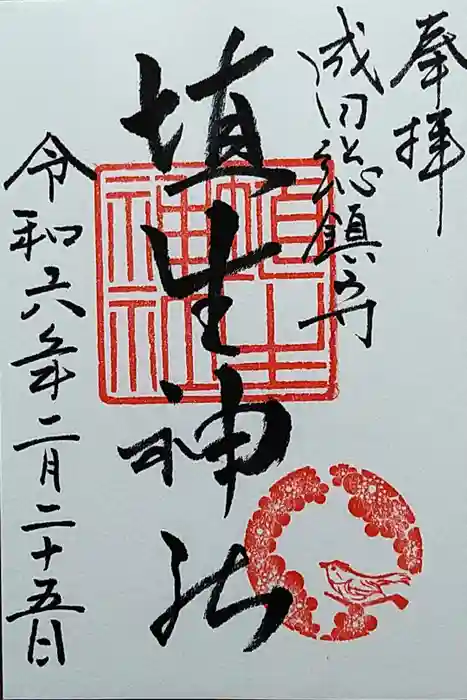 奉拝
成田総鎮守
埴生神社
埴生神社
令和六年二月二十五日